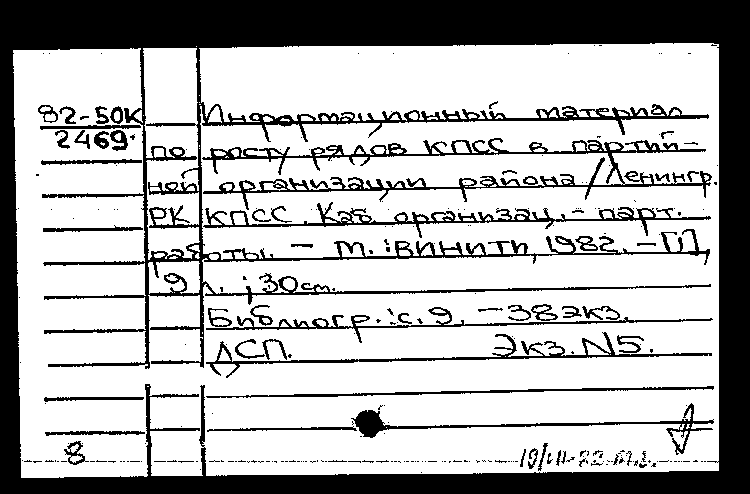 82-50К Информационный материал
2469 по росту рядов КПСС в партий-
ной организации района / Ленингр.
РК КПСС. Каб. организац.- парт.
работы. - М. : ВИНИТИ, 1982. - [1],
9 л. ; 30 cm.
Библиогр.: с. 9. - 38 экз.
ДСП. Экз. N5.
8